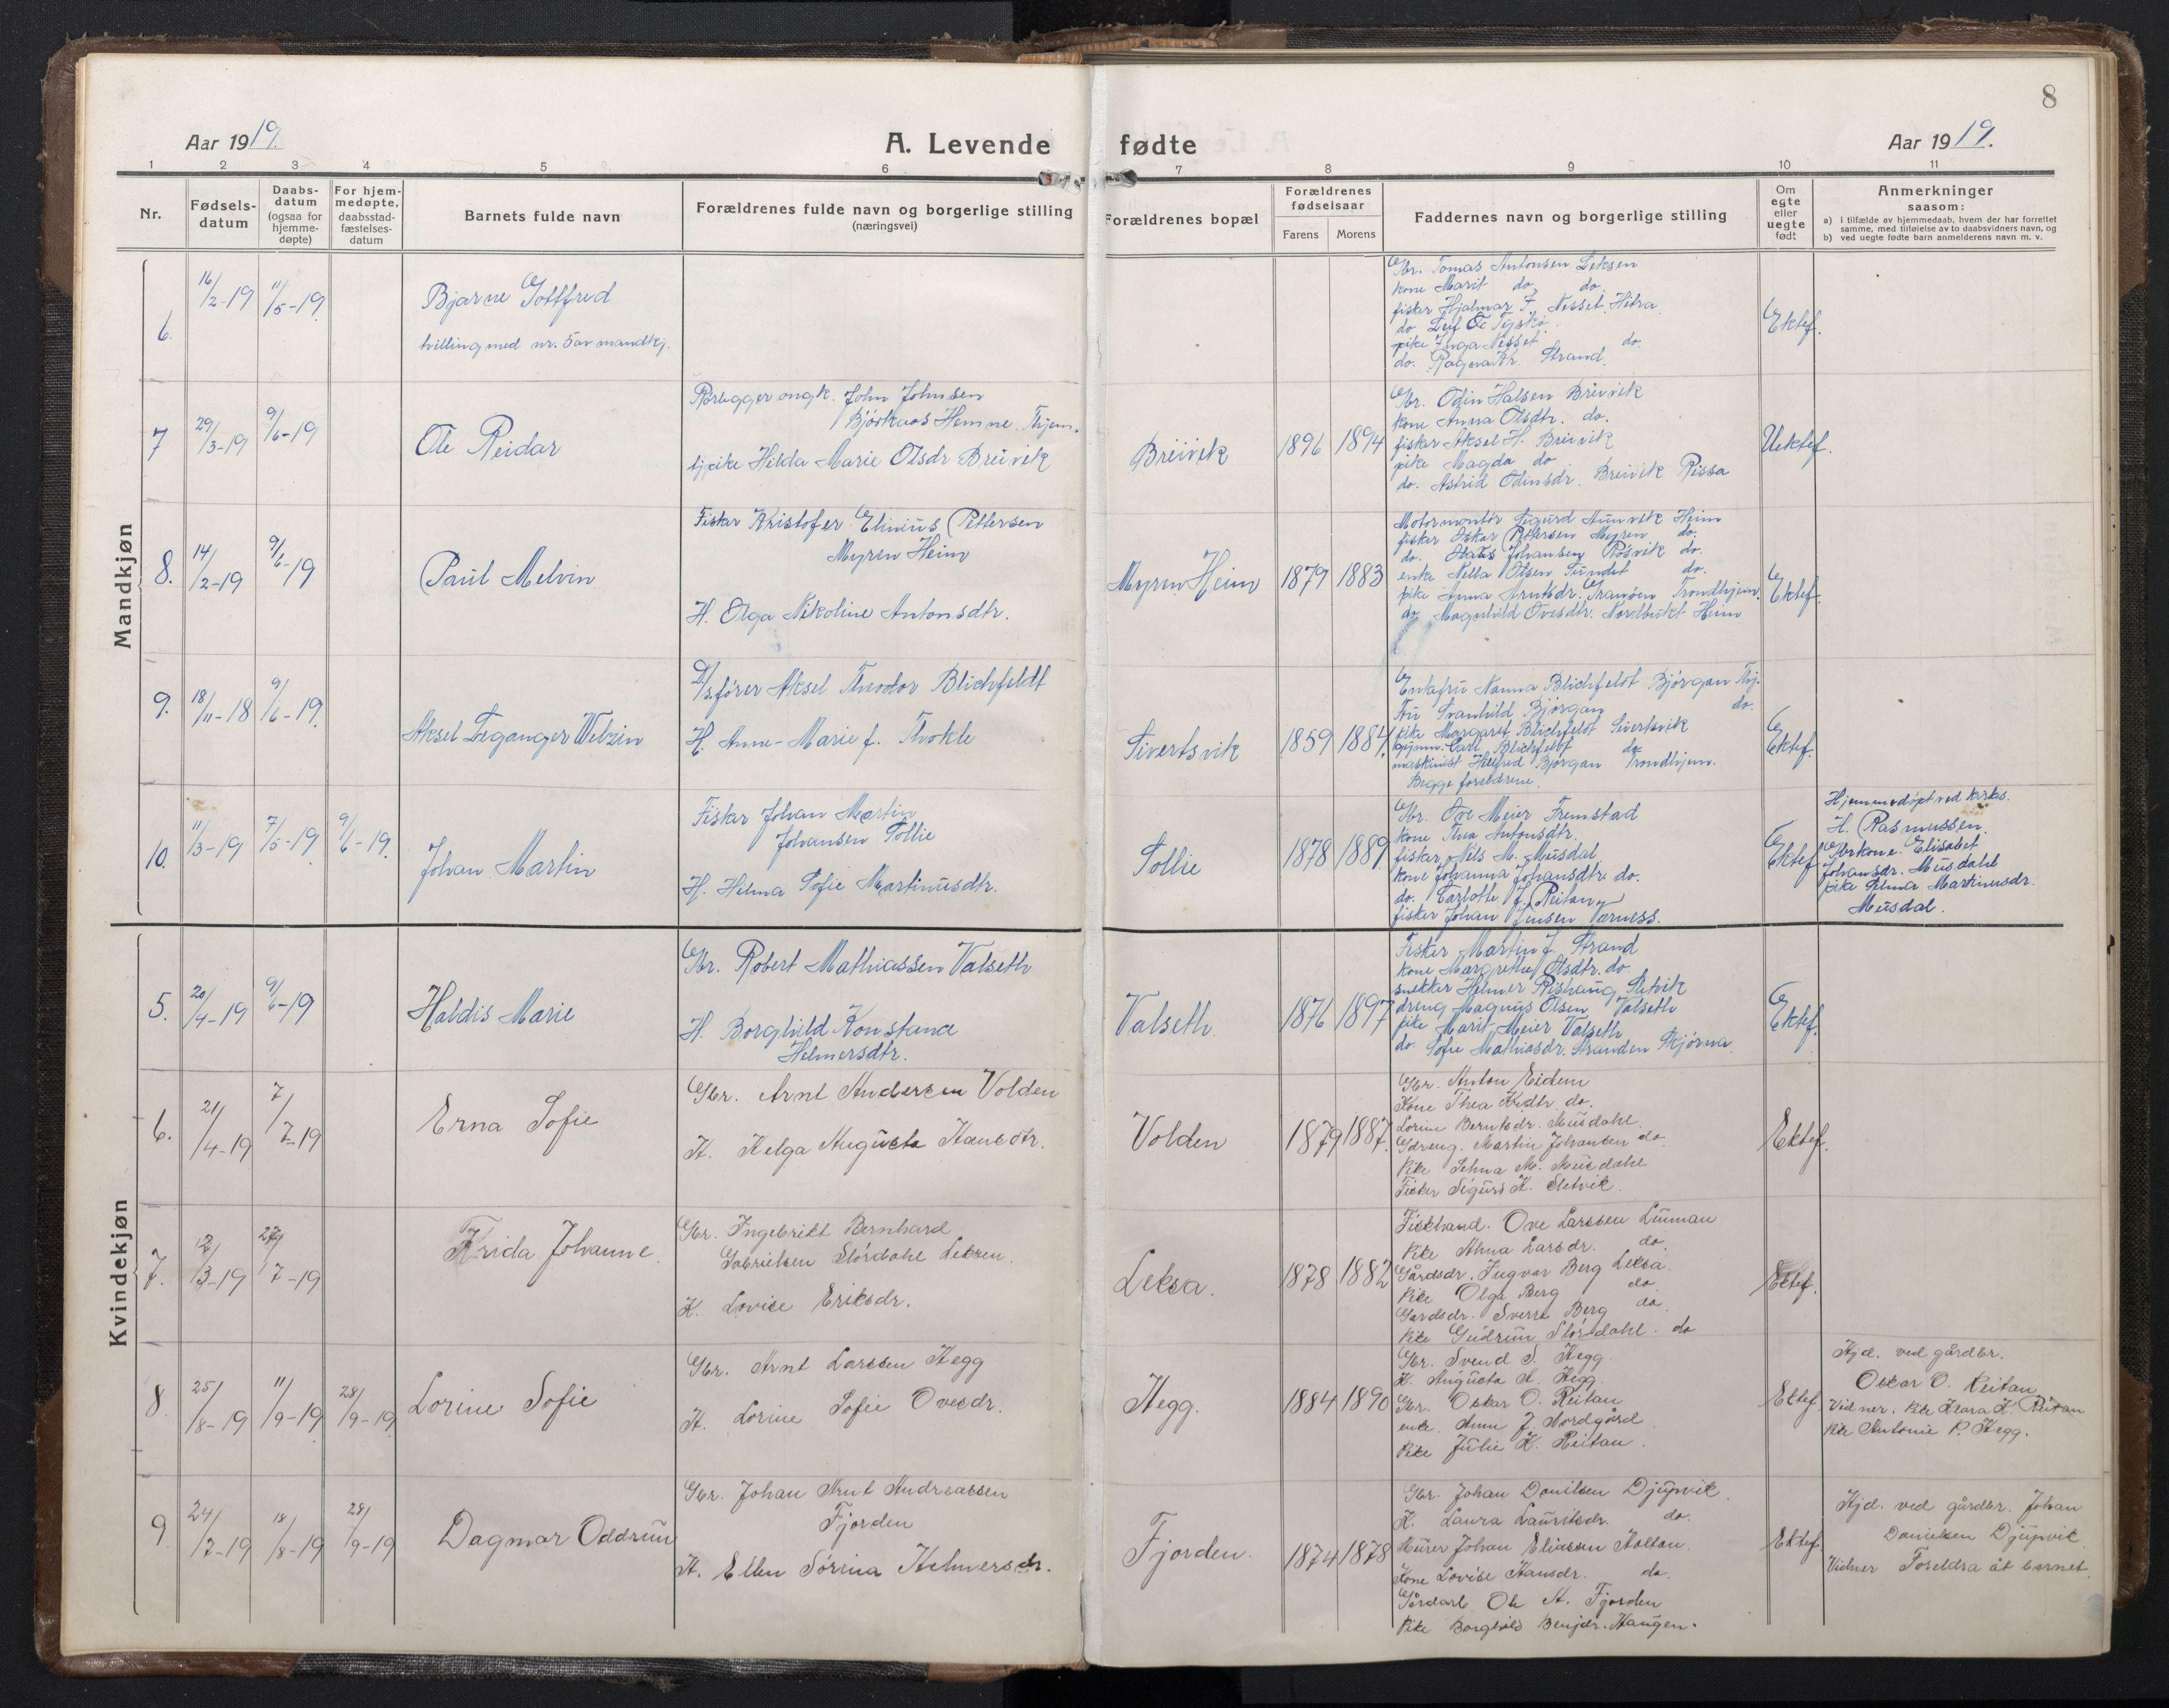 8
Aar 1919.
A. Levende fødte
Aar 1919.
1 2 3 4 5 6 7 8 9 10 11
Nr.
Fødsels-
datum
Daabs-
datum
(ogsaa for
hjemme-
døpte)
For hjem-
medøpte,
daabsstad-
fæstelses-
datum
Barnets fulde navn
Forældrenes fulde navn og borgerlige stilling
(næringsvei)
Forældrenes bopæl
Forældrenes
fødselsaar
Farens Morens
Faddernes navn og borgerlige stilling
Om
egte
eller
uegte
født
Anmerkninger
saasom:
a) i tilfælde av hjemmedaab, hvem der har forrettet
samme, med tilføielse av to daabsvidners navn, og
b) ved uegte fødte barn anmelderens navn m. v.
Mandkjøn
6.
16/2-19 11/5-19
Bjarne Gottfred
tvilling med nr. 5 av mandkj.
Gbr. Tomas Antonsen Leksen
kone Marit do. do.
fisker Hjalmar F. Nesset Hitra
do Leif
pike Inga Nesset do.
do. Ragna Kr. Strand.
Ektef.
7
29/3-19 9/6-19
Ole Reidar
Rørlegger ongk. John Johnsen
Bjørkaas Hemne. Thjem.
tj.pike Hilda Marie Olsdr Breivik
Breivik
1896 1894
Gbr. Odin Halsen Breivik
kone Anna Olsdtr. do.
fisker Aksel H. Breivik
pike Magda do
do. Astrid Odinsdr. Breivik Rissa
Uektef.
8.
14/2-19 9/6-19
Paul Melvin
Fisker Kristofer Elinius Pettersen
Myren Heim
H. Olga Nikoline Antonsdtr.
Myren Heim
1879 1883
Motormontør Sigurd Aunvik Heim
fisker Oskar Pettersen Myren do.
do. Johansen Røsvik do.
enke Nella Olsen Sundet do.
pike Anna Arntsdr. Tranøen Trondhjem.
do. Magnhild Ovesdtr. Nordbukt Heim
Ektef.
9.
18/11-18 9/6-19.
Aksel Leganger Welzin
D/s.fører Aksel Theodor Blichfeldt
H. Anne-Marie f. Thokle
Sivertsvik
1859 1884.
Enkefru Nanna Blichfeldt Bjørgan Thj.
Fru Svanhild Bjørgan do.
pike Margaret Blichfeldt Sivertsvik
gymn. Carl Blichfeldt do.
maskinist Hilfred Bjørgan Trondhjem.
Begge foreldrene.
Ektef.
10.
11/3-19 7/5-19 9/6-19.
Johan Martin
Fisker Johan Martin
Johansen Sollie
H. Helma Sofie Martinusdtr.
Sollie
1878 1889
Gbr. Ove Meier Fremstad
kone Thea Antonsdtr.
fisker Nils M. Musdal
kone Johanna Johansdtr. do.
do. Carlotte J. Reitan
fisker Johan Jensen Værness.
Ektef.
Hjemmedøpt ved kirkes.
H. Rasmussen.
Gbrkone Elisabet
Johansdr. Musdahl
pike Selma Martinusdr.
Musdal.
Kvindekjøn
5.
20/4-19 9/6-19
Haldis Marie
Gbr. Robert Mathiassen Valseth
H. Borghild Konstance
Helmersdtr.
Valseth.
1876 1897
Fisker Martin J. Strand
kone Margrethe Olsdtr. do.
snekker Helmer Rishaug Sletvik
dreng Magnus Olsen Valseth
pike Marit Meier Valseth
do. Sofie Mathiasdr. Stranden Stjørna.
Ektef.
6.
21/4-19 7/7-19
Erna Sofie
Gbr. Arnt Andersen Volden
H. Helga Augusta Hansdtr.
Volden
1879 1887.
Gbr. Anton Eidem
Kone Thea Kr.dtr. do.
Lorine Berntsdr. Musdahl.
Gdreng. Martin Johansen do
Pike Selma M. Musdahl
Fisker Sigurd H. Sletvik.
Ektef.
7.
12/3-19 27/7-19
Frida Johanne
Gbr. Ingebrikt Bernhard
Gabrielsen Størdahl Leksen.
H. Lovise Eriksdr.
Leksa.
1878 1882
Fiskhand. Ove Larssen Linman
Pike Alma Larsdr. do.
Gårdsdr. Ingvar Berg Leksa.
Pike Olga Berg do
Gardsdr. Sverre Berg do
Pike Gudrun Størdahl. do
Ektef.
8
25/8-19 11/9-19 28/9-19
Lorine Sofie
Gbr. Arnt Larssen Hegg
H. Lorine Sofie Ovesdr.
Hegg.
1884 1890
Gbr. Svend S. Hegg.
H. Augusta A. Hegg.
Gbr. Oskar O. Reitan
enke. Anna J. Nordgård
Pike Julie K. Reitan.
Ektef.
Hjd. ved gårdbr.
Oskar O. Reitan
Vidner. Pike Klara K. Reitan
Pike Antonie P. Hegg.
9
24/7-19 18/8-19 28/9-19
Dagmar Oddrun
Gbr. Johan Arnt Andreassen
Fjorden
H. Ellen Sørina Helmersdr.
Fjorden.
1874 1878
Gbr. Johan Danilsen Djupvik
H. Laura Lauritsdr. do.
Murer Johan Eliassen Holtan.
Kone Lovise Hansdr. do.
Gårdarb. Ole A. Fjorden
Pike Borghild Benjdr. Haugen.
Ektef.
Hjd. ved gårdbr. Johan
Danielsen Djupvik
Vidner Foreldra åt barnet.